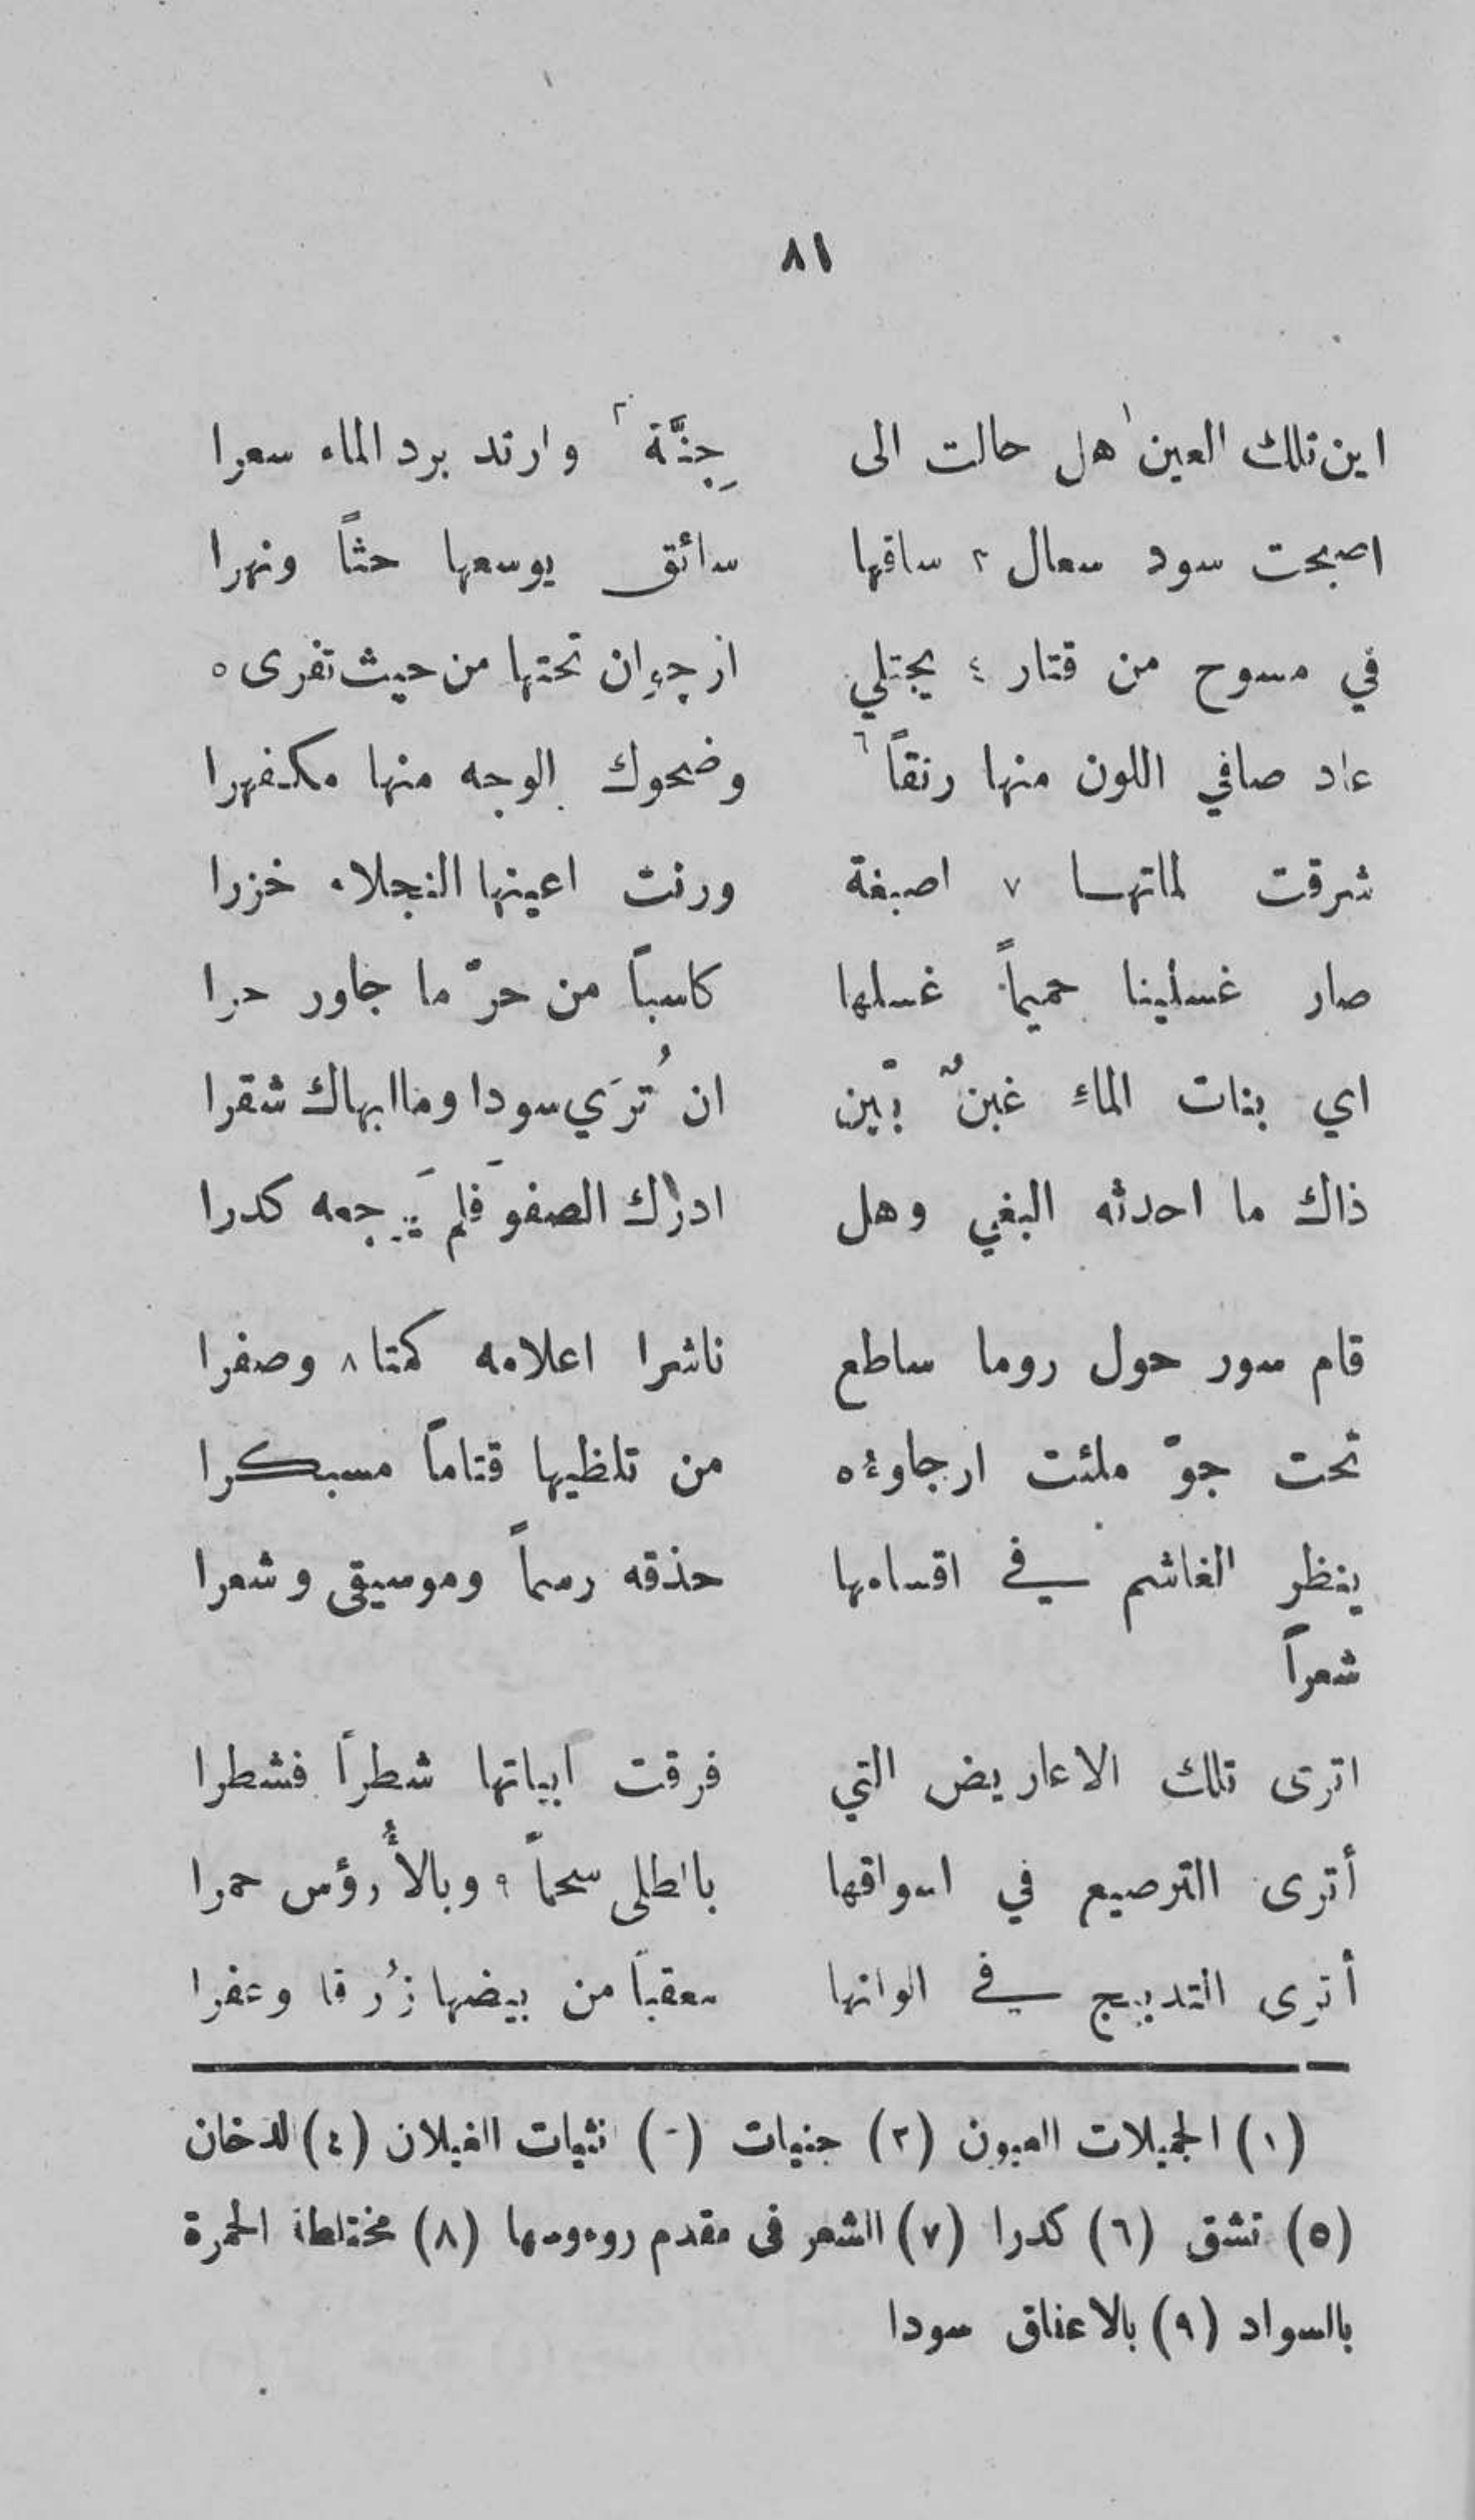 ٨١
اين تلك العين ١ هل حالت الى    جِنَّة ٢ وارتد برد الماء سعرا
اصبحت سود سعال ٢ ساقها    سائق يوسعها حثاً ونهرا
في مسوح من قتار ٤ يجتلي    ارجوان تحتها من حيث تفرى ٥
عاد صافي اللون منها رنقاً ٦    وضحوك الوجه منها مكفهرا
شرقت لماتهـا ٧ اصبغة    ورنت اعينها النجلاء خزرا
صار غسلينا حميماً غسلها    كاسباً من حرّ ما جاور حرا
اي بنات الماء غبنٌ بّين    ان تُرَي سودا وما ابهاك شقرا
ذاك ما احدثه البغي وهل    ادرك الصفوَ فلم يَرجعه كدرا
قام سور حول روما ساطع    ناشرا اعلامه كمتا ٨ وصفرا
تحت جوّ ملئت ارجاوءه    من تلظيها قتاماً مسبكرا
ينظر الغاشم في اقسامها    حذقه رسماً وموسيقى وشعرا
شعراً
اترى تلك الاعاريض التي    فرقت ابياتها شطراً فشطرا
أترى الترصيع في اسواقها    بالطلى سحماً ٩ وبالأُرؤس حمرا
أترى التدبيج في الوانها    معقباً من بيضها زُرقا وعفرا
(١) الجميلات العيون (٢) جنيات (-) انثيات الغيلان (٤) الدخان
(٥) تشق (٦) كدرا (٧) الشعر فى مقدم روءوسها (٨) مختلطة الحمرة
بالسواد (٩) بالاعناق سودا